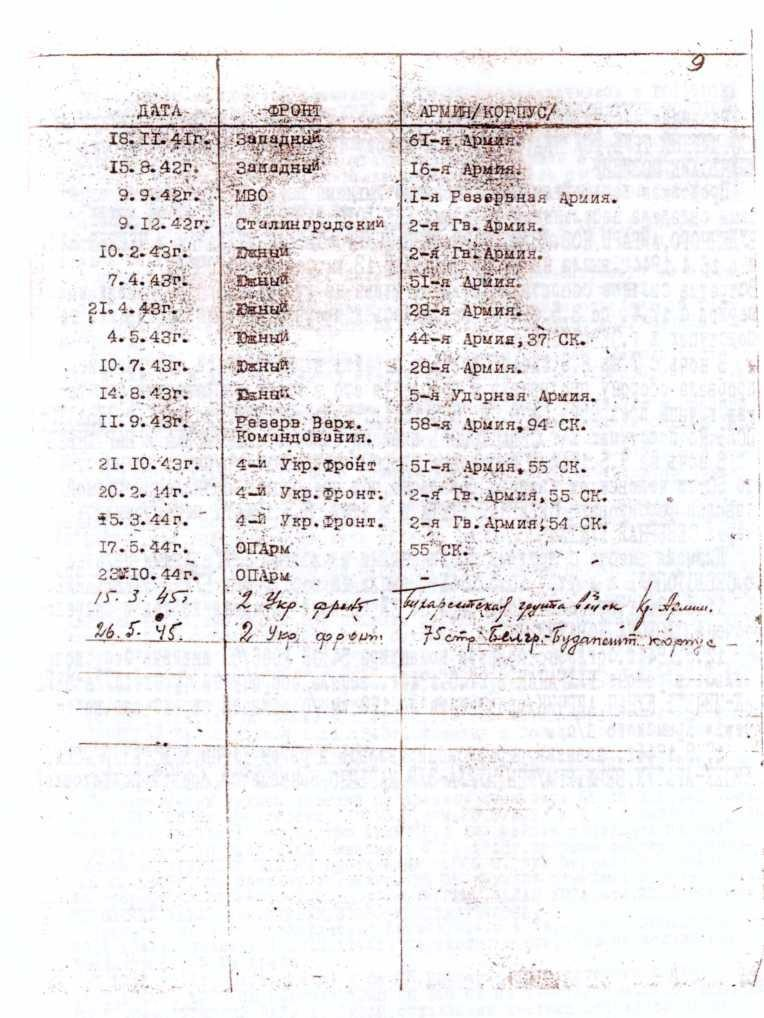 9
ДАТА ФРОНТ АРМИИ/КОРПУС/
18.11.41г. Западный 61-я Армия.
15.8.42г. Западный 16-я Армия.
9.9.42г. МВО 1-я Резервная Армия.
9.12.42г. Сталинградский 2-я Гв.Армия.
10.2.43г. Южный 2-я Гв.Армия.
7.4.43г. Южный 51-я Армия.
21.4.43г. Южный 28-я Армия.
4.5.43г. Южный 44-я Армия,37 СК.
10.7.43г. Южный 28-я Армия.
14.8.43г. Южный 5-я Ударная Армия.
11.9.43г. Резерв Верх. 58-я Армия,94 СК.
Командования.
21.10.43г. 4-й Укр.Фронт 51-я Армия,55 СК.
20.2.44г. 4-й Укр.Фронт. 2-я Гв.Армия,55 СК.
15.3.44г. 4-й Укр.Фронт. 2-я Гв.Армия,54 СК.
17.5.44г. ОПАрм 55 СК.
23.10.44г. ОПАрм -
15.3.45г. 2 Укр. фронт Бухарестская группа войск Кр. Армии.
26.5.45. 2 Укр. фронт. 75 стр. Белгр. Будапешт. корпус –